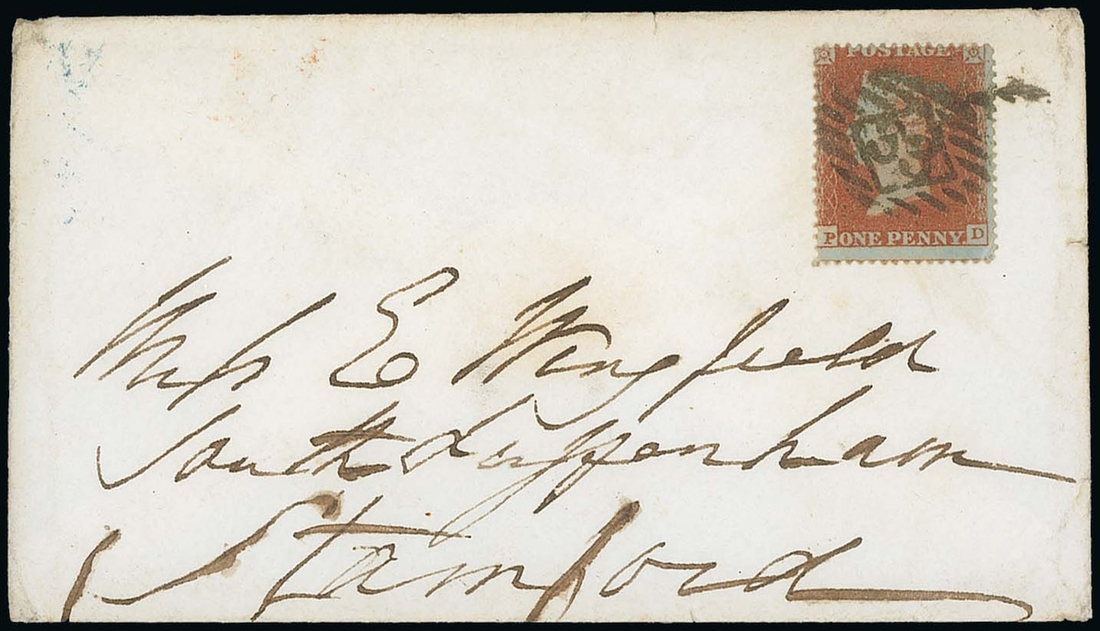 POSTAGE
P ONE PENNY D
Miss E Wingfield
South Luffenham
Stamford